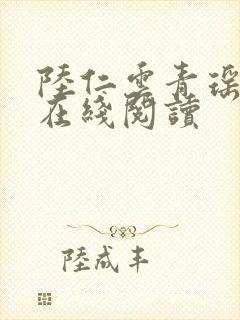 陸仁雲青瑶
在綫閱讀
陸咸丰